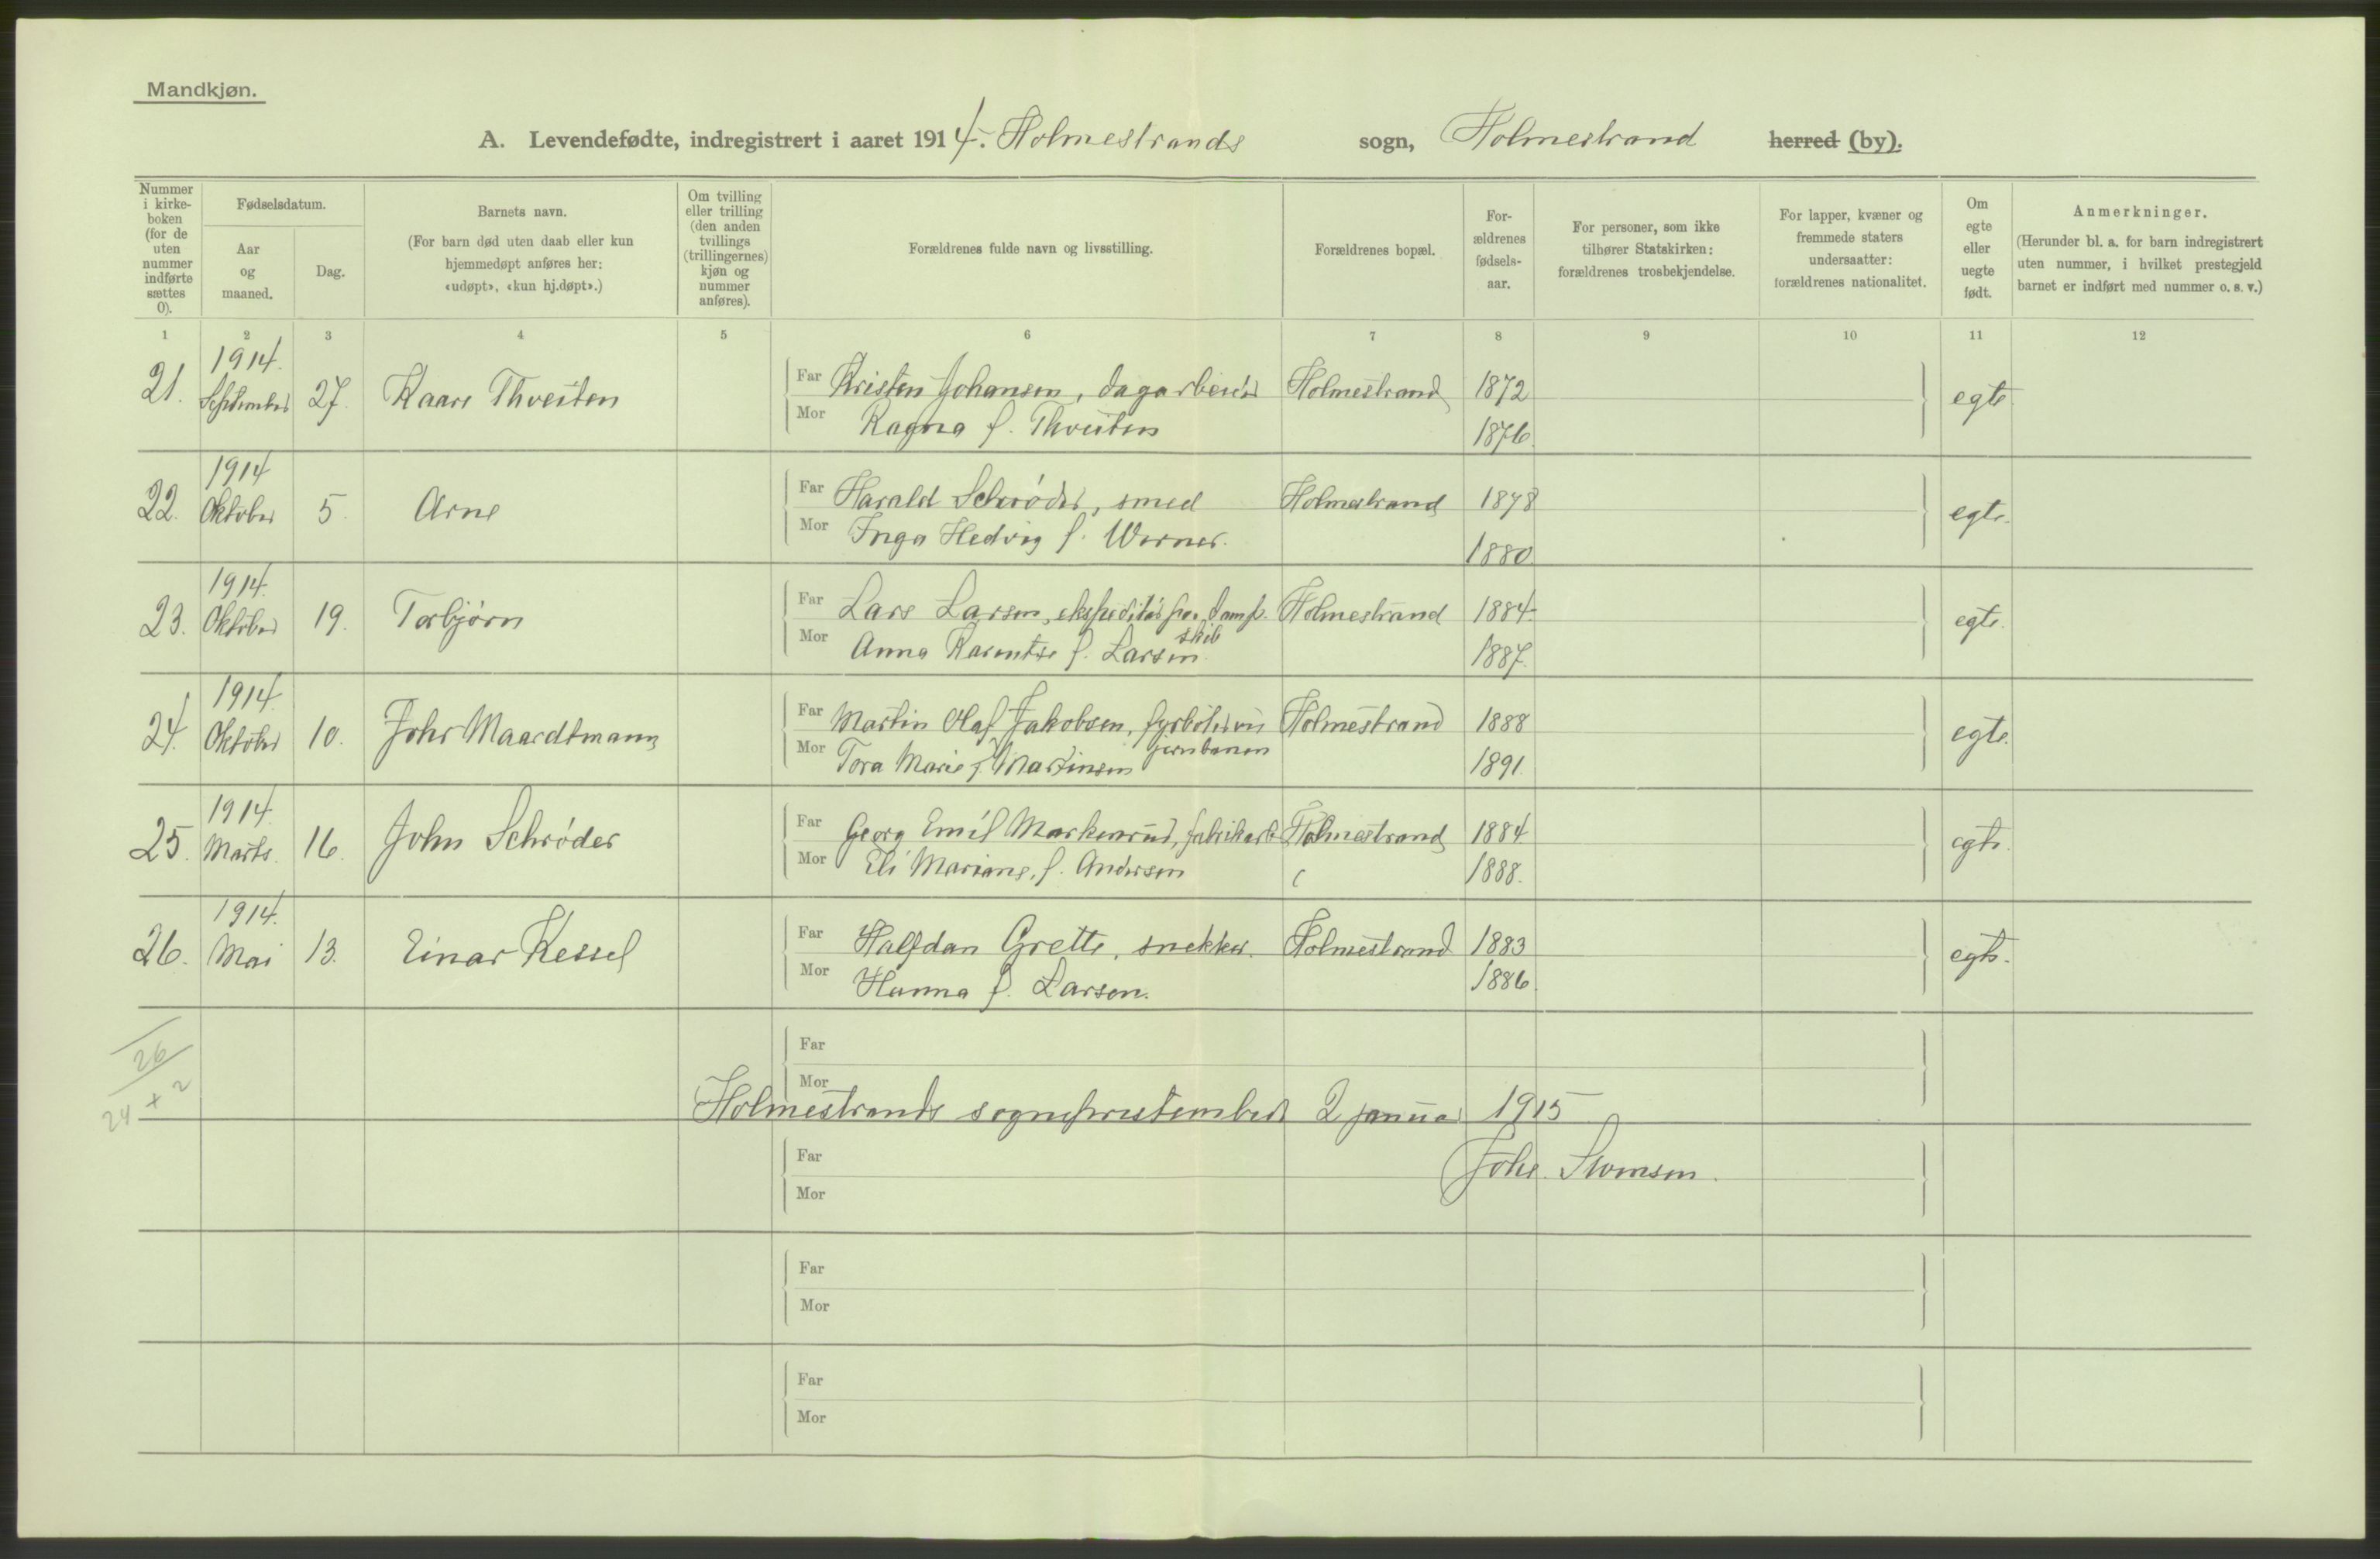 Mandkjøn.
A. Levendefødte, indregistrert i aaret 1914. Holmestrands sogn, Holmestrand herred (by).
Nummer i kirke-boken (for de uten nummer indførte sættes 0).
Fødselsdatum.
Aar og maaned.
Dag.
Barnets navn.
(For barn død uten daab eller kun hjemmedøpt anføres her: «udøpt», «kun hj.døpt».)
Om tvilling eller trilling (den anden tvillings (trillingernes) kjøn og nummer anføres).
Forældrenes fulde navn og livsstilling.
Forældrenes bopæl.
For-ældrenes fødsels-aar.
For personer, som ikke tilhører Statskirken: forældrenes trosbekjendelse.
For lapper, kvæner og fremmede staters undersaatter: forældrenes nationalitet.
Om egte eller uegte født.
Anmerkninger.
(Herunder bl. a. for barn indregistrert uten nummer, i hvilket prestegjeld barnet er indført med nummer o. s. v.)
1 2 3 4 5 6 7 8 9 10 11 12
21. 1914. September 27. Kaare Thveiten Far Kristen Johansen, dagarbeider Holmestrand 1872 egte.
Mor Ragna f. Thveiten 1876.
22. 1914 Oktober 5. Arne Far Harald Schrøder, smed Holmestrand 1878 egte.
Mor Inga Hedvig f. Werner. 1880.
23. 1914. Oktober 19. Torbjørn Far Lars Larsen, ekspeditør paa dampskib Holmestrand 1884. egte.
Mor Anna f. Larsen. 1887.
24. 1914. Oktober 10. Johs Maardtmann Far Martin Olaf Jakobsen, fyrbøter vei jernbanen Holmestrand 1888 egte.
Mor Tora Marie f. Martinsen 1891.
25. 1914. Marts. 16. John Schrøder Far Georg Emil Markenrud, fabrikarb. Holmestrand 1884 egte.
Mor Eli Mariane, f. Andersen 1888.
26. 1914. Mai 13. Einar Kessel Far Halfdan Grette, snekker. Holmestrand 1883 egte.
Mor Hanna f. Larsen. 1886.
26
24 + 2
Far
Mor
Holmestrands sogneprestembed 2 januar 1915
Johs.
Far
Mor
Far
Mor
Far
Mor